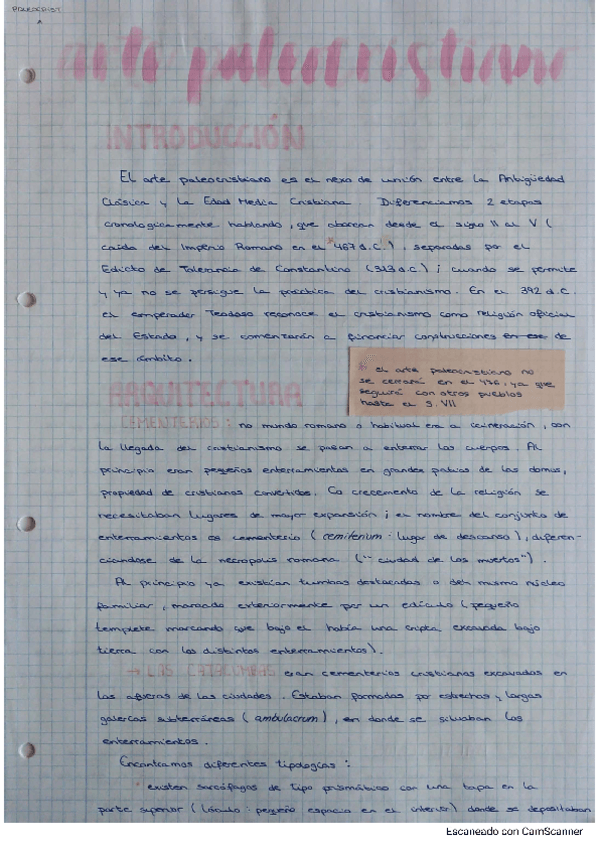 PALEOCRIST
A
arte paleocristiano
INTRODUCCIÓN
El arte paleocristiano es el nexo de unión entre la Antigüedad
Clásica y la Edad Media Cristiana. Diferenciamos 2 etapas
cronologicamente hablando, que abarcan desde el siglo II al V (
caída del Imperio Romano en el *467 d.C.), separadas por el
Edicto de Tolerancia de Constantino (313 d.C.); cuando se permite
y ya no se persigue la práctica del cristianismo. En el 392 d.C.
el emperador Teodosio reconoce el cristianismo como religión oficial
del Estado, y se comenzarán a financiar construcciones en ese de
ese ámbito.
* el arte paleocristiano no
se cerrará en el 476, ya que
seguirá con otros pueblos
hasta el S. VII
ARQUITECTURA
CEMENTERIOS: no mundo romano o habitual era a cineración, con
la llegada del cristianismo se pasan a enterrar los cuerpos. Al
principio eran pequeños enterramientos en grandes patios de las domus,
propiedad de cristianos convertidos. Co crecemento de la religión se
necesitaban lugares de mayor expansión; el nombre del conjunto de
enterramientos es cementerio (cemiterium: lugar de descanso), diferen-
ciándose de la necropolis romana ("ciudad de los muertos").
Al principio ya existían tumbas destacadas o den mismo núcleo
familiar, marcado exteriormente por un edículo (pequeño
templete marcando que bajo el había una cripta excavada bajo
tierra con los distintos enterramientos).
→ LAS CATACUMBAS eran cementerios cristianos excavados en
las afueras de las ciudades. Estaban formadas por estrechas y largas
galerías subterráneas (ambulacrum), en donde se situaban los
enterramientos.
Encontramos diferentes tipologías:
existen sarcófagos de tipo prismático con una tapa en la
parte superior (lóculo: pequeño espacio en el interior) donde se depositaban
Escaneado con CamScanner